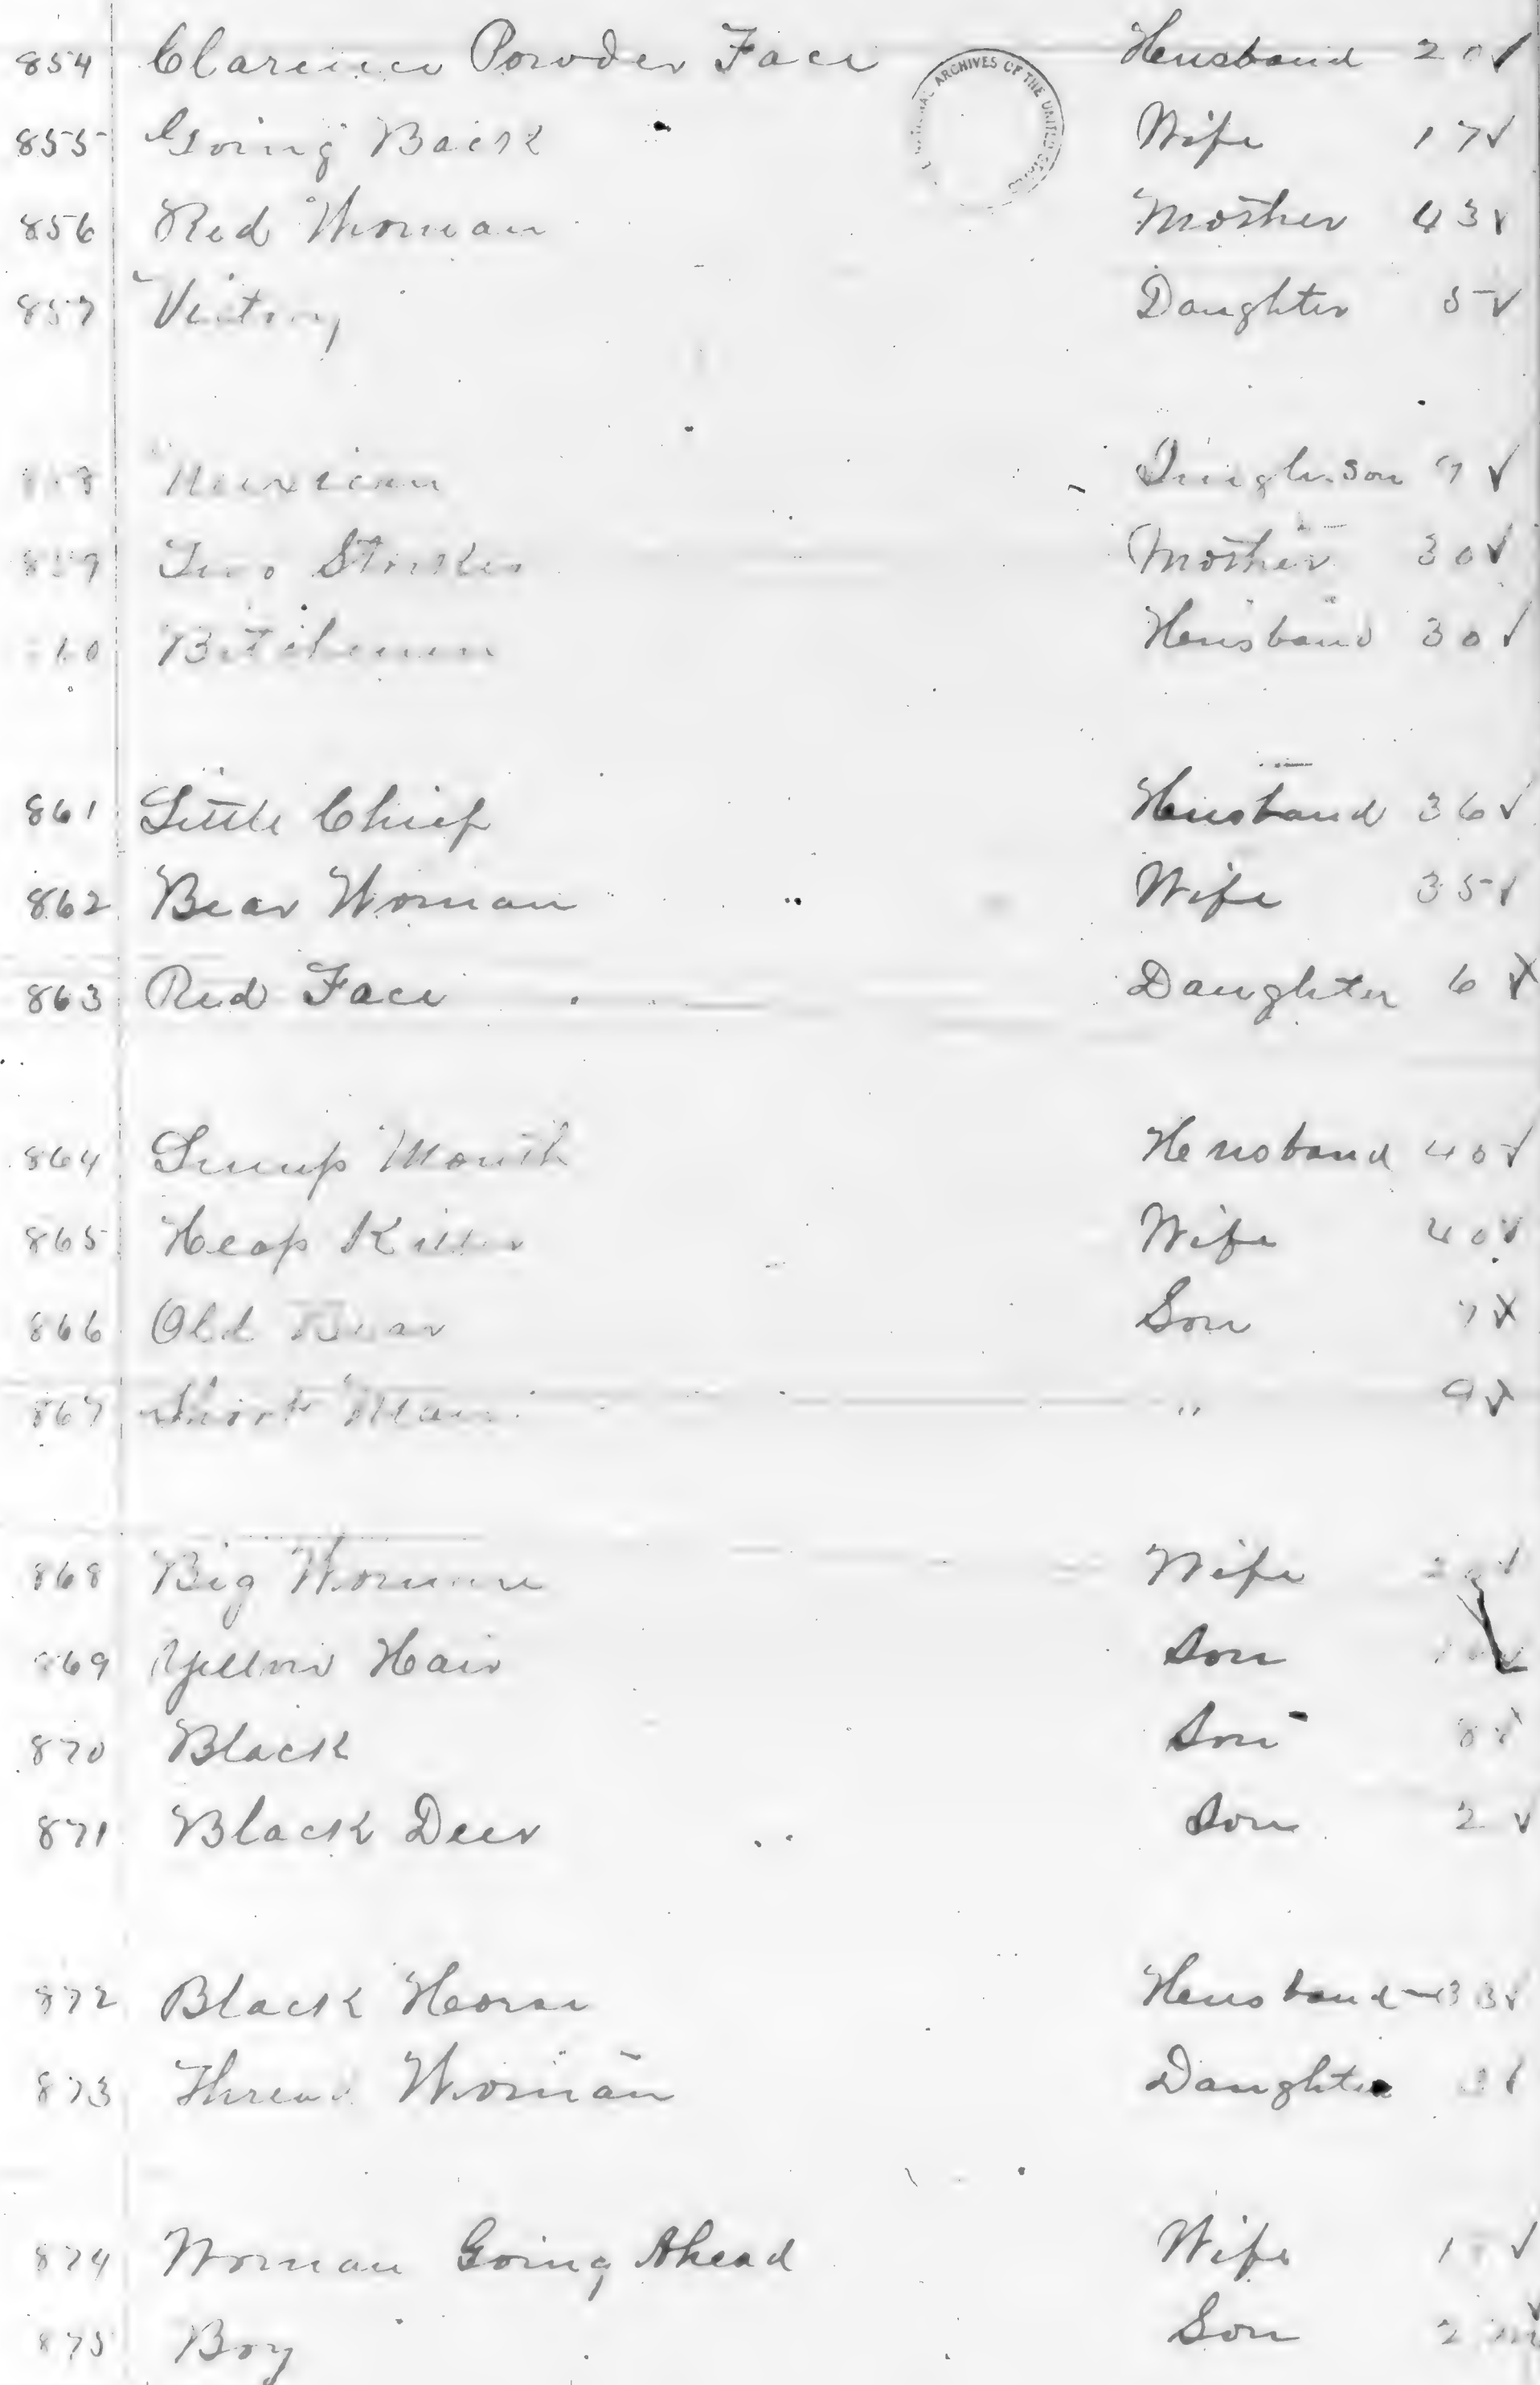 854 Clarence Powder Face Husband 20 ✓
ARCHIVES OF THE UNITED STATES
855 Going Back Wife 17 ✓
856 Red Woman Mother 43 ✓
857 Victory Daughter 5 ✓
Mexican son 7 ✓
859 Two Strikes Mother 30 ✓
Husband 30 ✓
861 Little Chief Husband 36 ✓
862 Bear Woman Wife 35 ✓
863 Red Face Daughter 6
864 Lump Mouth Husband 40 ✓
865 Heap Killer Wife 40 ✓
866 Old Bear Son 7
867 Short Man " 9
868 Big Woman Wife
869 Yellow Hair Son
870 Black Son 8
871 Black Deer Son 2 ✓
872 Black Horse Husband 33 ✓
873 Thread Woman Daughter
874 Woman Going Ahead Wife
875 Boy Son 2